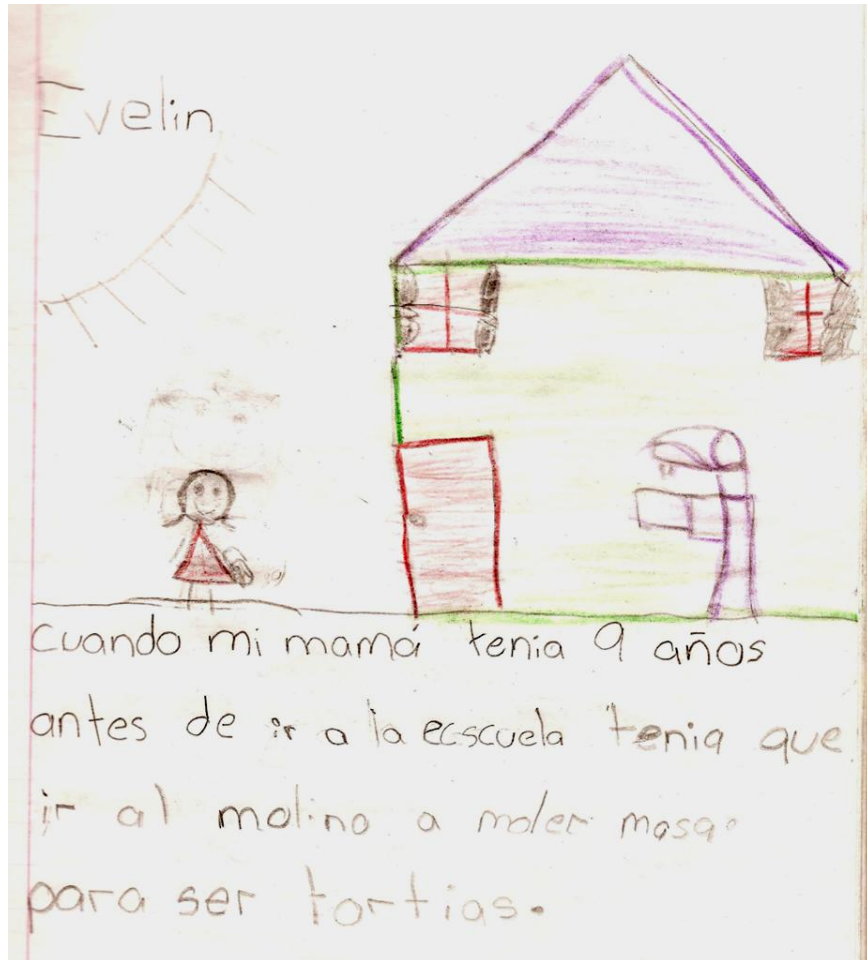 Evelin
cuando mi mamá tenia 9 años
antes de ir a la ecscuela tenia que
ir al molino a moler masa.
para ser tortias.